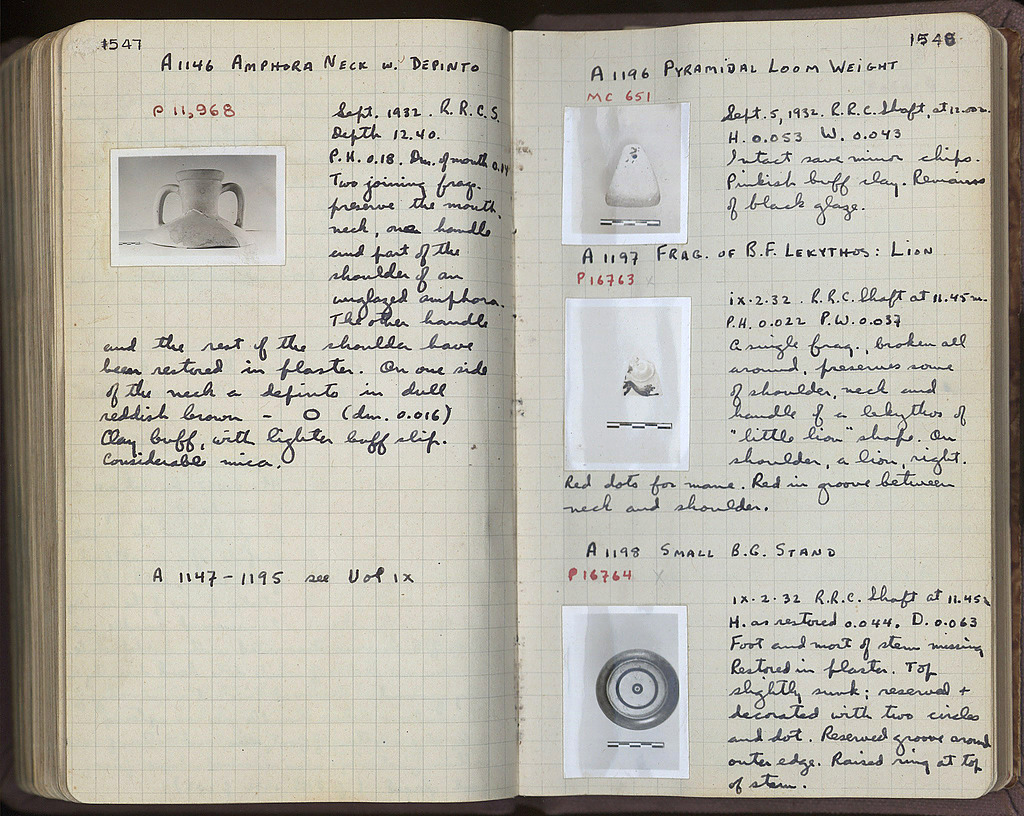 1547
A 1146 AMPHORA NECK W. DEPINTO
P 11,968
Sept. 1932. R.R.C.S.
Depth 12.40.
P.H. 0.18. Dm. of mouth 0.14
Two joining frag.
preserve the mouth,
neck, one handle
and part of the
shoulder of an
unglazed amphora.
The other handle
and the rest of the shoulder have
been restored in plaster. On one side
of the neck a depinto in dull
reddish brown - O (dm. 0.016)
Clay buff, with lighter buff slip.
Considerable mica.
A 1147-1195 see Vol IX
1548
A 1196 PYRAMIDAL LOOM WEIGHT
MC 651
Sept. 5, 1932. R.R.C. Shaft, at 12.00m.
H. 0.053 W. 0.043
Intact save minor chips.
Pinkish buff clay. Remains
of black glaze.
A 1197 FRAG. OF B.F. LEKYTHOS: LION
P 16763 x
ix.2.32. R.R.C. Shaft at 11.45m.
P.H. 0.022 P.W. 0.037
A single frag., broken all
around, preserves some
of shoulder, neck and
handle of a lekythos of
"little lion" shape. On
shoulder, a lion, right.
Red dots for mane. Red in groove between
neck and shoulder.
A 1198 SMALL B.G. STAND
P 16764 x
ix.2.32 R.R.C. Shaft at 11.45m
H. as restored 0.044. D. 0.063
Foot and most of stem missing
Restored in plaster. Top
slightly sunk; reserved +
decorated with two circles
and dot. Reserved groove around
outer edge. Raised ring at top
of stem.